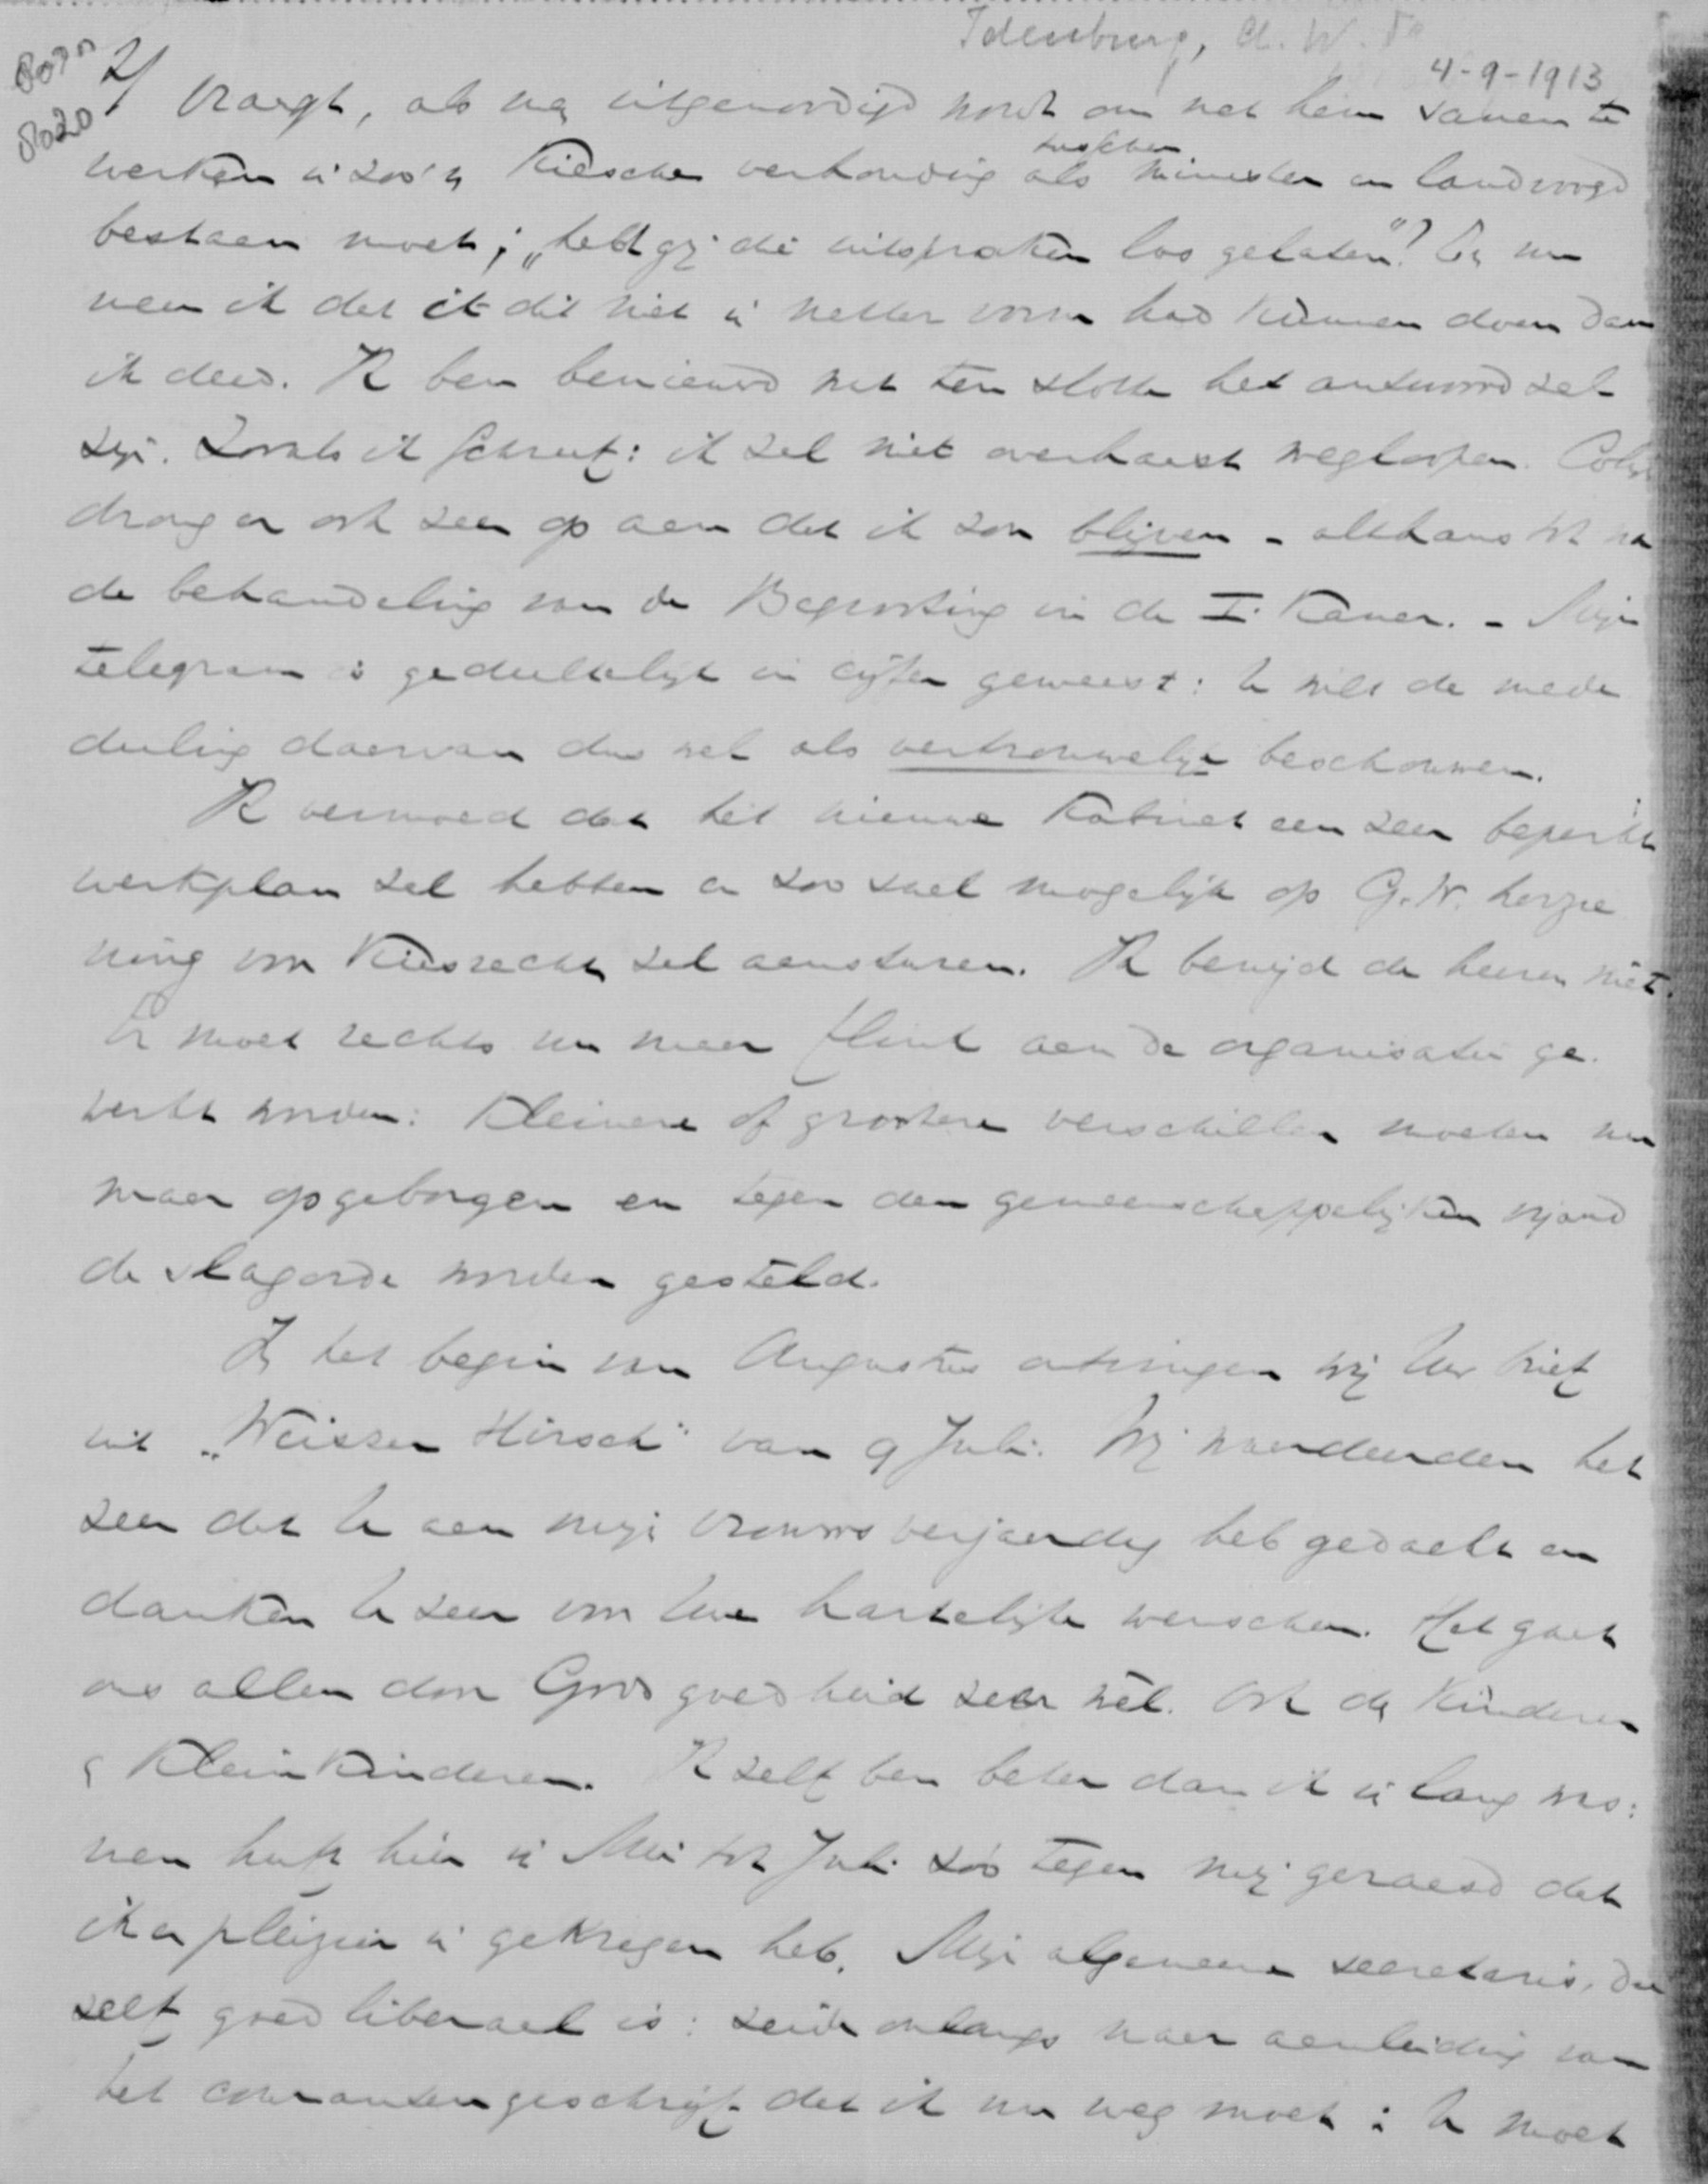 Idenburg, A. W. F.
4-9-1913
8020
2/ vraagt, als men uitgenoodigd wordt om met hem samen te
werken in zoo'n kiesche verhouding als tusschen minister en landvoogd
bestaan moet; „hebt gij die uitspraken los gelaten"? En nu
meen ik dat ik dit niet in netter vorm had kunnen doen dan
ik deed. Ik ben benieuwd wat ten slotte het antwoord zal
zijn. Zooals ik schreef: ik zal niet overhaast wegloopen. Colijn
drong er ook zeer op aan dat ik zou blijven - althans tot na
de behandeling van de Begrooting in de I. Kamer. - Mijn
telegram is gedeeltelijk in cijfer geweest: U wilt de mede
deeling daarvan dus wel als vertrouwelijk beschouwen.
Ik vermoed dat het nieuwe Kabinet een zeer beperkt
werkplan zal hebben en zoo snel mogelijk op G.W. herzie
ning om Kiesrecht zal aansturen. Ik benijd de heeren niet.
Er moet rechts nu maar flink aan de organisatie ge
werkt worden: Kleinere of grootere verschillen moeten nu
maar opgeborgen en tegen den gemeenschappelijken vijand
de slagorde worden gesteld.
In het begin van Augustus ontvingen wij Uw brief
uit „Weisser Hirsch" van 9 Juli. Wij waardeerden het
zeer dat U aan mijn vrouws verjaardag heb gedacht en
danken U zeer om Uwe hartelijke wenschen. Het gaat
ons allen door Gods goedheid zeer wel. Ook de Kinderen
& Kleinkinderen. Ik zelf ben beter dan ik in lang was:
men heeft hier in Mei tot Juli zóó tegen mij geraasd dat
ik er pleizier in gekregen heb. Mijn algemeene secretaris, die
zelf goed liberaal is: zeide onlangs naar aanleiding van
het courantengeschrijf dat ik nu weg moet: U moet